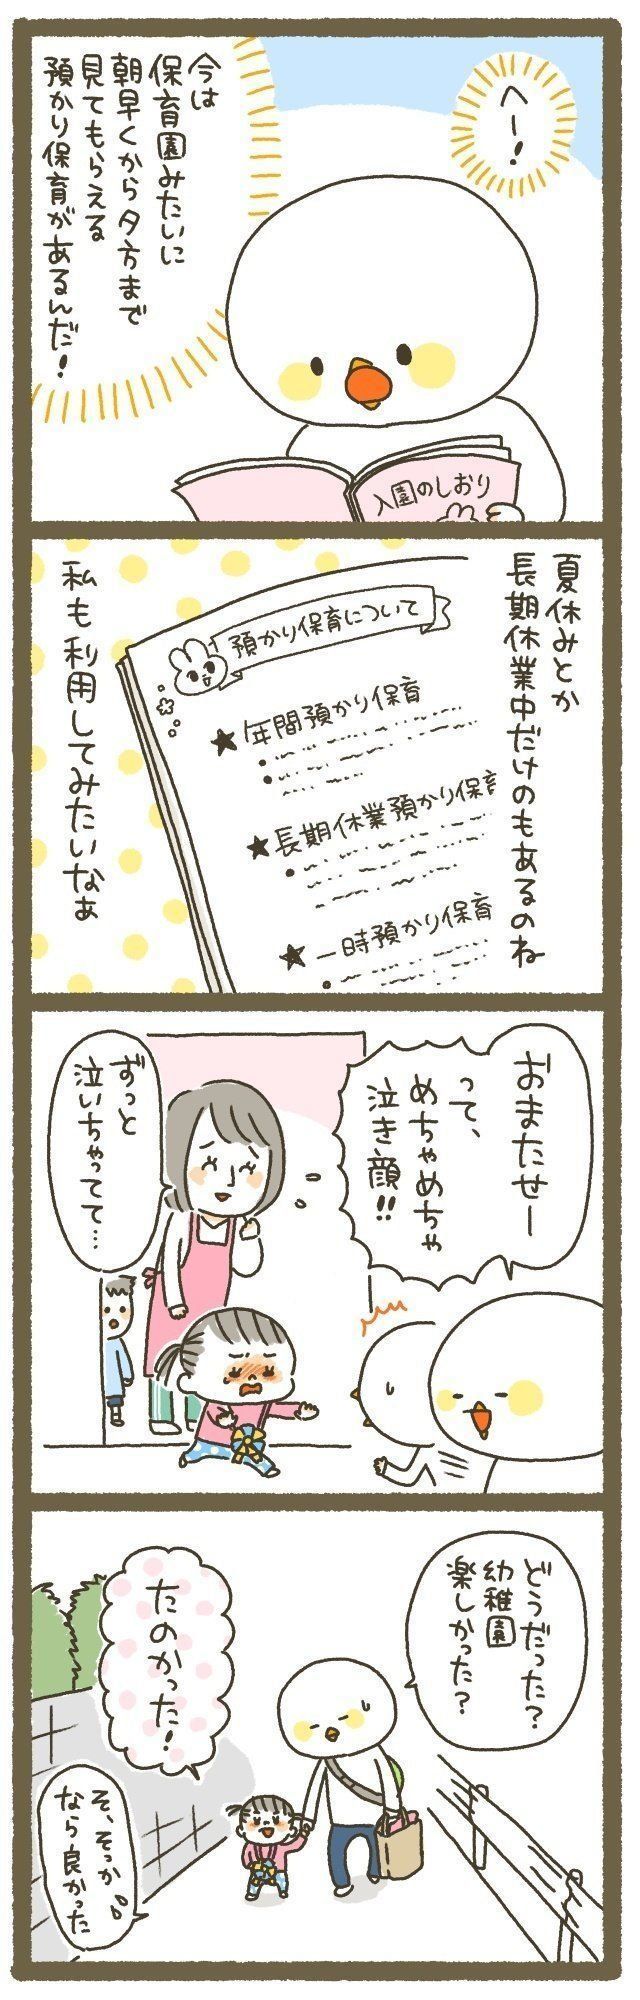 へー！
今は
保育園みたいに
朝早くから夕方まで
見てもらえる
預かり保育があるんだ！
入園のしおり
夏休みとか
長期休業中だけのもあるのね
預かり保育について
★年間預かり保育
★長期休業預かり保育
★一時預かり保育
私も利用してみたいなぁ
おまたせー
って、
めちゃめちゃ
泣き顔！！
ずっと
泣いちゃってて…
どうだった？
幼稚園
楽しかった？
たのかった！
そ、そっか
なら良かった